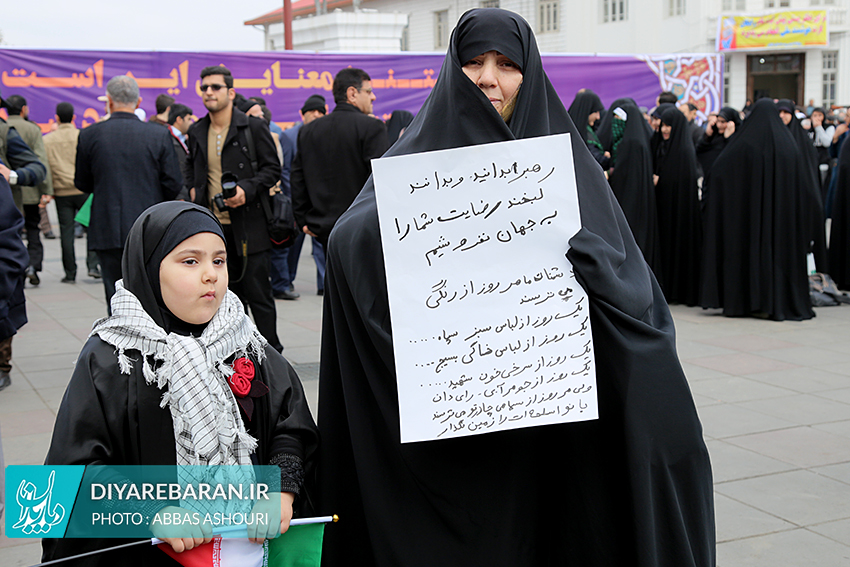 تنهـ معنایش این است
رهبر ابدانید و بدانند
لبخند رضایت شما را
به جهان نفروشیم
دشمنان ما هر روز از رنگی
می ترسند
یک روز از لباس سبز سپاه.....
یک روز از لباس خاکی بسیج....
یک روز از سرخی خون شهید.....
یک روز از جوهر آبی رای دان
ولی هر روز از سیاهی چادر تو می ترسند
با تو اسلحه ات را زمین نگذار
DIYAREBARAN.IR
PHOTO : ABBAS ASHOURI